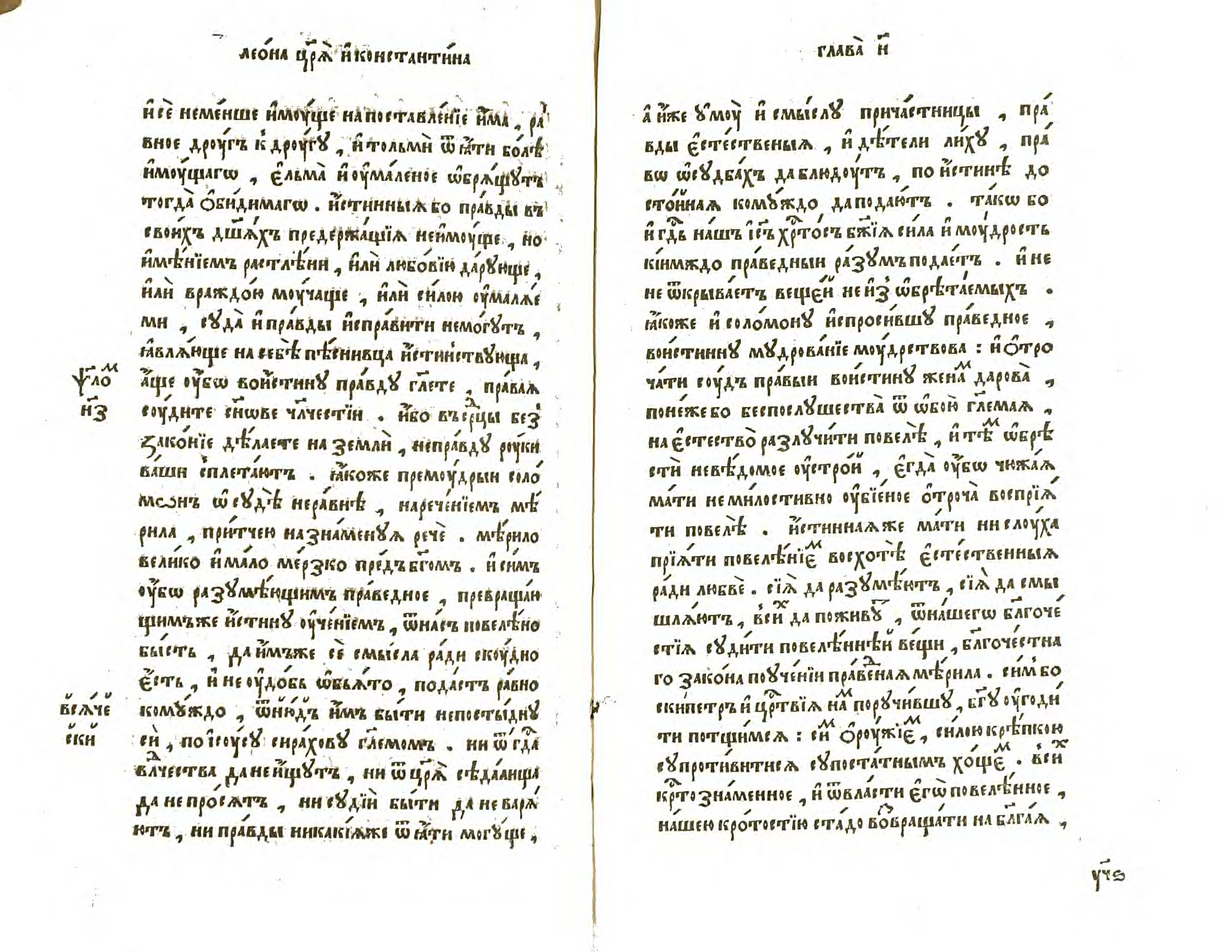 леѡ́на цр҃ѧ̀ и҆ константи́на
и҆ сѐ неме́нше и҆мꙋ́ще на поставле́нїе и҆́ма , ра́
вное дрꙋ́гъ к̾ дрꙋ́гꙋ , и҆ тольмѝ ѿѧ́ти бо́лѣ
и҆мꙋ́щагѡ , є҆льма̀ и҆ оу҆ма́леное ѡ҆брѧ́щꙋтъ
тогда̀ ѻ҆би́димагѡ . и҆́стинныѧ бо пра́вды въ
свои́хъ дш҃а́хъ предержа́щїѧ неи҆мꙋ́ще , но
и҆мѣ́нїемъ растлѣ́ни , и҆лѝ любо́вїю да́рꙋюще ,
и҆лѝ враждо́ю мꙋ́чаще , и҆лѝ си́лою оу҆малѧ́е
ми , сꙋда̀ и҆ пра́вды и҆спра́вити немо́гꙋтъ ,
ꙗ҆влѧ́юще на себѣ̀ пѣ́снивца и҆́стинствꙋюща ,
ѱало́м
а҆́ще оу҆́бѡ вои́стинꙋ пра́вдꙋ гл҃ете , пра́ваѧ
н҃з
сꙋди́те сн҃ове чл҃честїи . и҆́бо въ се́рдцы без̾
зако́нїе дѣ́лаете на землѝ , непра́вдꙋ рꙋ́ки
ва́ши сплета́ютъ . ꙗ҆́коже премꙋ́дрыи соло
мѡ́нъ ѡ҆ сꙋдѣ̀ нера́внѣ , нарече́нїемъ мѣ́
рила , при́тчею назна́менꙋѧ речѐ . мѣ́рило
вели́ко и҆ ма́ло ме́рзко предъ бг҃омъ . и҆ си́мъ
оу҆́бѡ разꙋмѣ́ющимъ пра́ведное , превраща́ю
щимъже и҆́стинꙋ оу҆че́нїемъ , ѿна́съ повелѣ́но
бы́сть , да и҆́мъже сѐ смы́сла ра́ди скꙋ́дно
є҆́сть , и҆ не оу҆до́бь ѡ҆б̾ѧ́то , пода́стъ ра́вно
всѧ́че
комꙋ́ждо , ѿню́дъ и҆̀мъ бы́ти непосты́днꙋ
ски
си̑ , по і҆сꙋ́сꙋ сира́ховꙋ гл҃емомъ . ни ѿ гд҃а
вл҃чества да не и҆́щꙋтъ , ни ѿ цр҃ѧ̀ сѣда́лища
да не про́сѧтъ , ни сꙋдїи̑ бы́ти да не варѧ́
ютъ , ни пра́вды никакі́ѧже ѿѧ́ти могꙋ́ще ,
глава̀ и҃
а҆ и҆́же оу҆мꙋ̀ и҆ смы́слꙋ прича́стницы , пра́
вды є҆сте́ственыѧ , и҆ дѣ́тели ли́хꙋ , пра́
вѡ ѡ҆сꙋдба́хъ да блюдꙋ́тъ , по и҆́стинѣ до
сто́йнаѧ комꙋ́ждо да пода́ютъ . та́кѡ бо
и҆ гд҃ь на́шъ і҆с҃ъ хр҃то́съ бж҃їѧ си́ла и҆ мꙋ́дрость
кі́имждо пра́ведныи ра́зꙋмъ подае́тъ . и҆ не
не ѿкрыва́етъ веще́й не и҆з̾ ѡ҆брѣта́емыхъ .
ꙗ҆́коже и҆ соломо́нꙋ и҆спроси́вшꙋ пра́ведное ,
вои́стиннꙋ мꙋдрова́нїе мꙋ́дрствова : и҆ ѻ҆тро
ча́ти сꙋ́дъ пра́выи вои́стинꙋ жена́м дарова̀ ,
поне́же бо беспослꙋшества̀ ѿ ѡ҆бою̀ гл҃емаѧ ,
на є҆стество̀ разлꙋчи́ти повелѣ̀ , и҆ тѣ́м ѡ҆брѣ
сти̑ невѣ́домое оу҆стро́и , є҆гда̀ оу҆́бѡ чюжа́ѧ
ма́ти неми́лостивно оу҆бїе́ное ѻ҆троча̀ воспрїѧ́
ти повелѣ̀ . и҆́стиннаѧже ма́ти ни слꙋ́ха
прїѧ́ти повелѣ́нїем восхотѣ̀ є҆сте́ственныѧ
ра́ди любвѐ . сїѧ̑ да разꙋмѣ́ютъ , сїѧ̑ да смы
шлѧ́ютъ , вси́х да поживꙋ̀ , ѿна́шегѡ бл҃гоче́
стїѧ сꙋди́ти повелѣ́ннѣй ве́щи , бл҃гоче́стна
го зако́на поꙋче́нїи пра́веднаѧ мѣ́рила . си́м бо
ски́петръ и҆ цр҃твїѧ на́м порꙋчи́вшꙋ , бг҃ꙋ оу҆годи́
ти потщи́мсѧ : си́м ѻ҆рꙋ́жїем , си́лою крѣ́пкою
сꙋпроти́витисѧ сꙋпоста́тнымъ хо́щем . вси́х
крⷭ҇тозна́менное , и҆ ѿвла́сти є҆гѡ̀ повелѣ́нное ,
на́шею кро́тостїю ста́до во́звраща́ти на бл҃га́ѧ ,
у҃чѕ